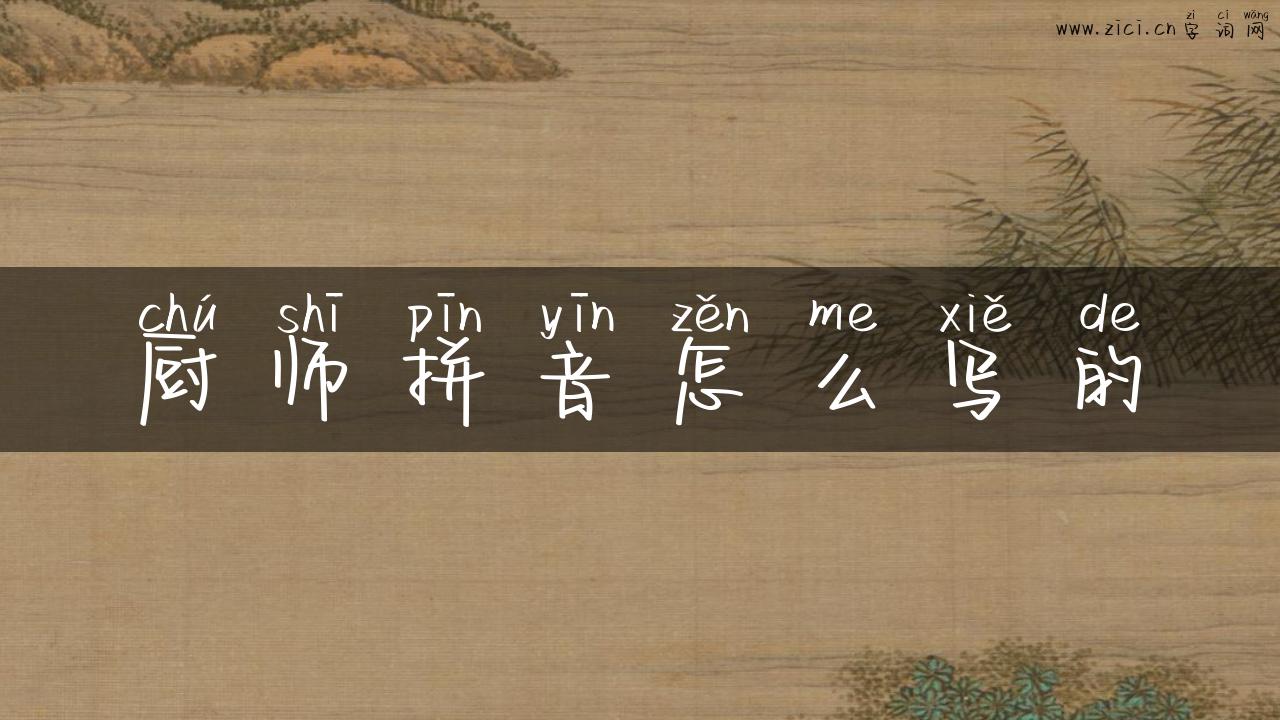 zì cí wǎng
www.zici.cn 字词网
chú shī pīn yīn zěn me xiě de
厨师拼音怎么写的